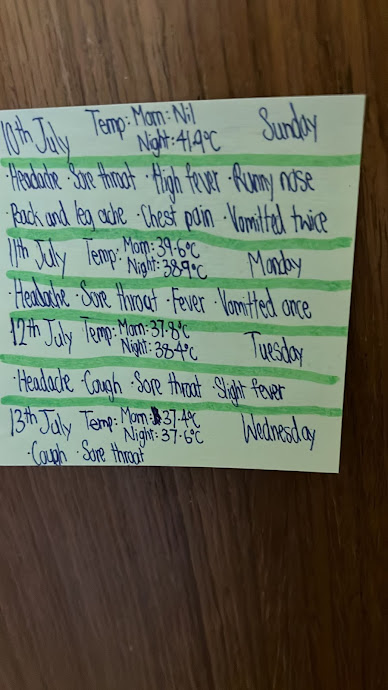 10th July Temp: Morn: Nil Sunday
Night: 41.4°C
·Headache ·Sore throat ·High fever ·Runny nose
·Back and leg ache ·Chest pain ·Vomitted twice
11th July Temp: Morn: 39.6°C Monday
Night: 38.9°C
·Headache ·Sore throat ·Fever ·Vomitted once
12th July Temp: Morn: 37.8°C Tuesday
Night: 38.4°C
·Headache ·Cough ·Sore throat ·Slight fever
13th July Temp: Morn: 37.4°C Wednesday
Night: 37.6°C
·Cough ·Sore throat